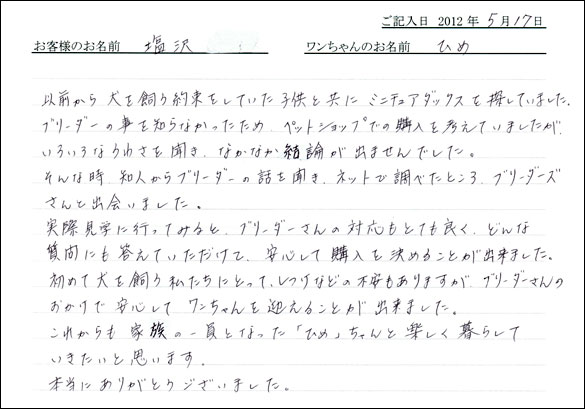 ご記入日 2012 年 5月17日
お客様のお名前 塩沢 ワンちゃんのお名前 ひめ
以前から犬を飼う約束をしていた子供と共にミニチュアダックスを探していました。
ブリーダーの事を知らなかったため、ペットショップでの購入を考えていましたが、
いろいろなうわさを聞き、なかなか結論が出ませんでした。
そんな時、知人からブリーダーの話を聞き、ネットで調べたところ、ブリーダーズ
さんと出会いました。
実際見学に行ってみると、ブリーダーさんの対応もとても良く、どんな
質問にも答えていただけて、安心して購入を決めることが出来ました。
初めて犬を飼う私たちにとって、しつけなどの不安もありますが、ブリーダーさんの
おかげで安心してワンちゃんを迎えることが出来ました。
これからも家族の一員となった「ひめ」ちゃんと楽しく暮らして
いきたいと思います。
本当にありがとうございました。